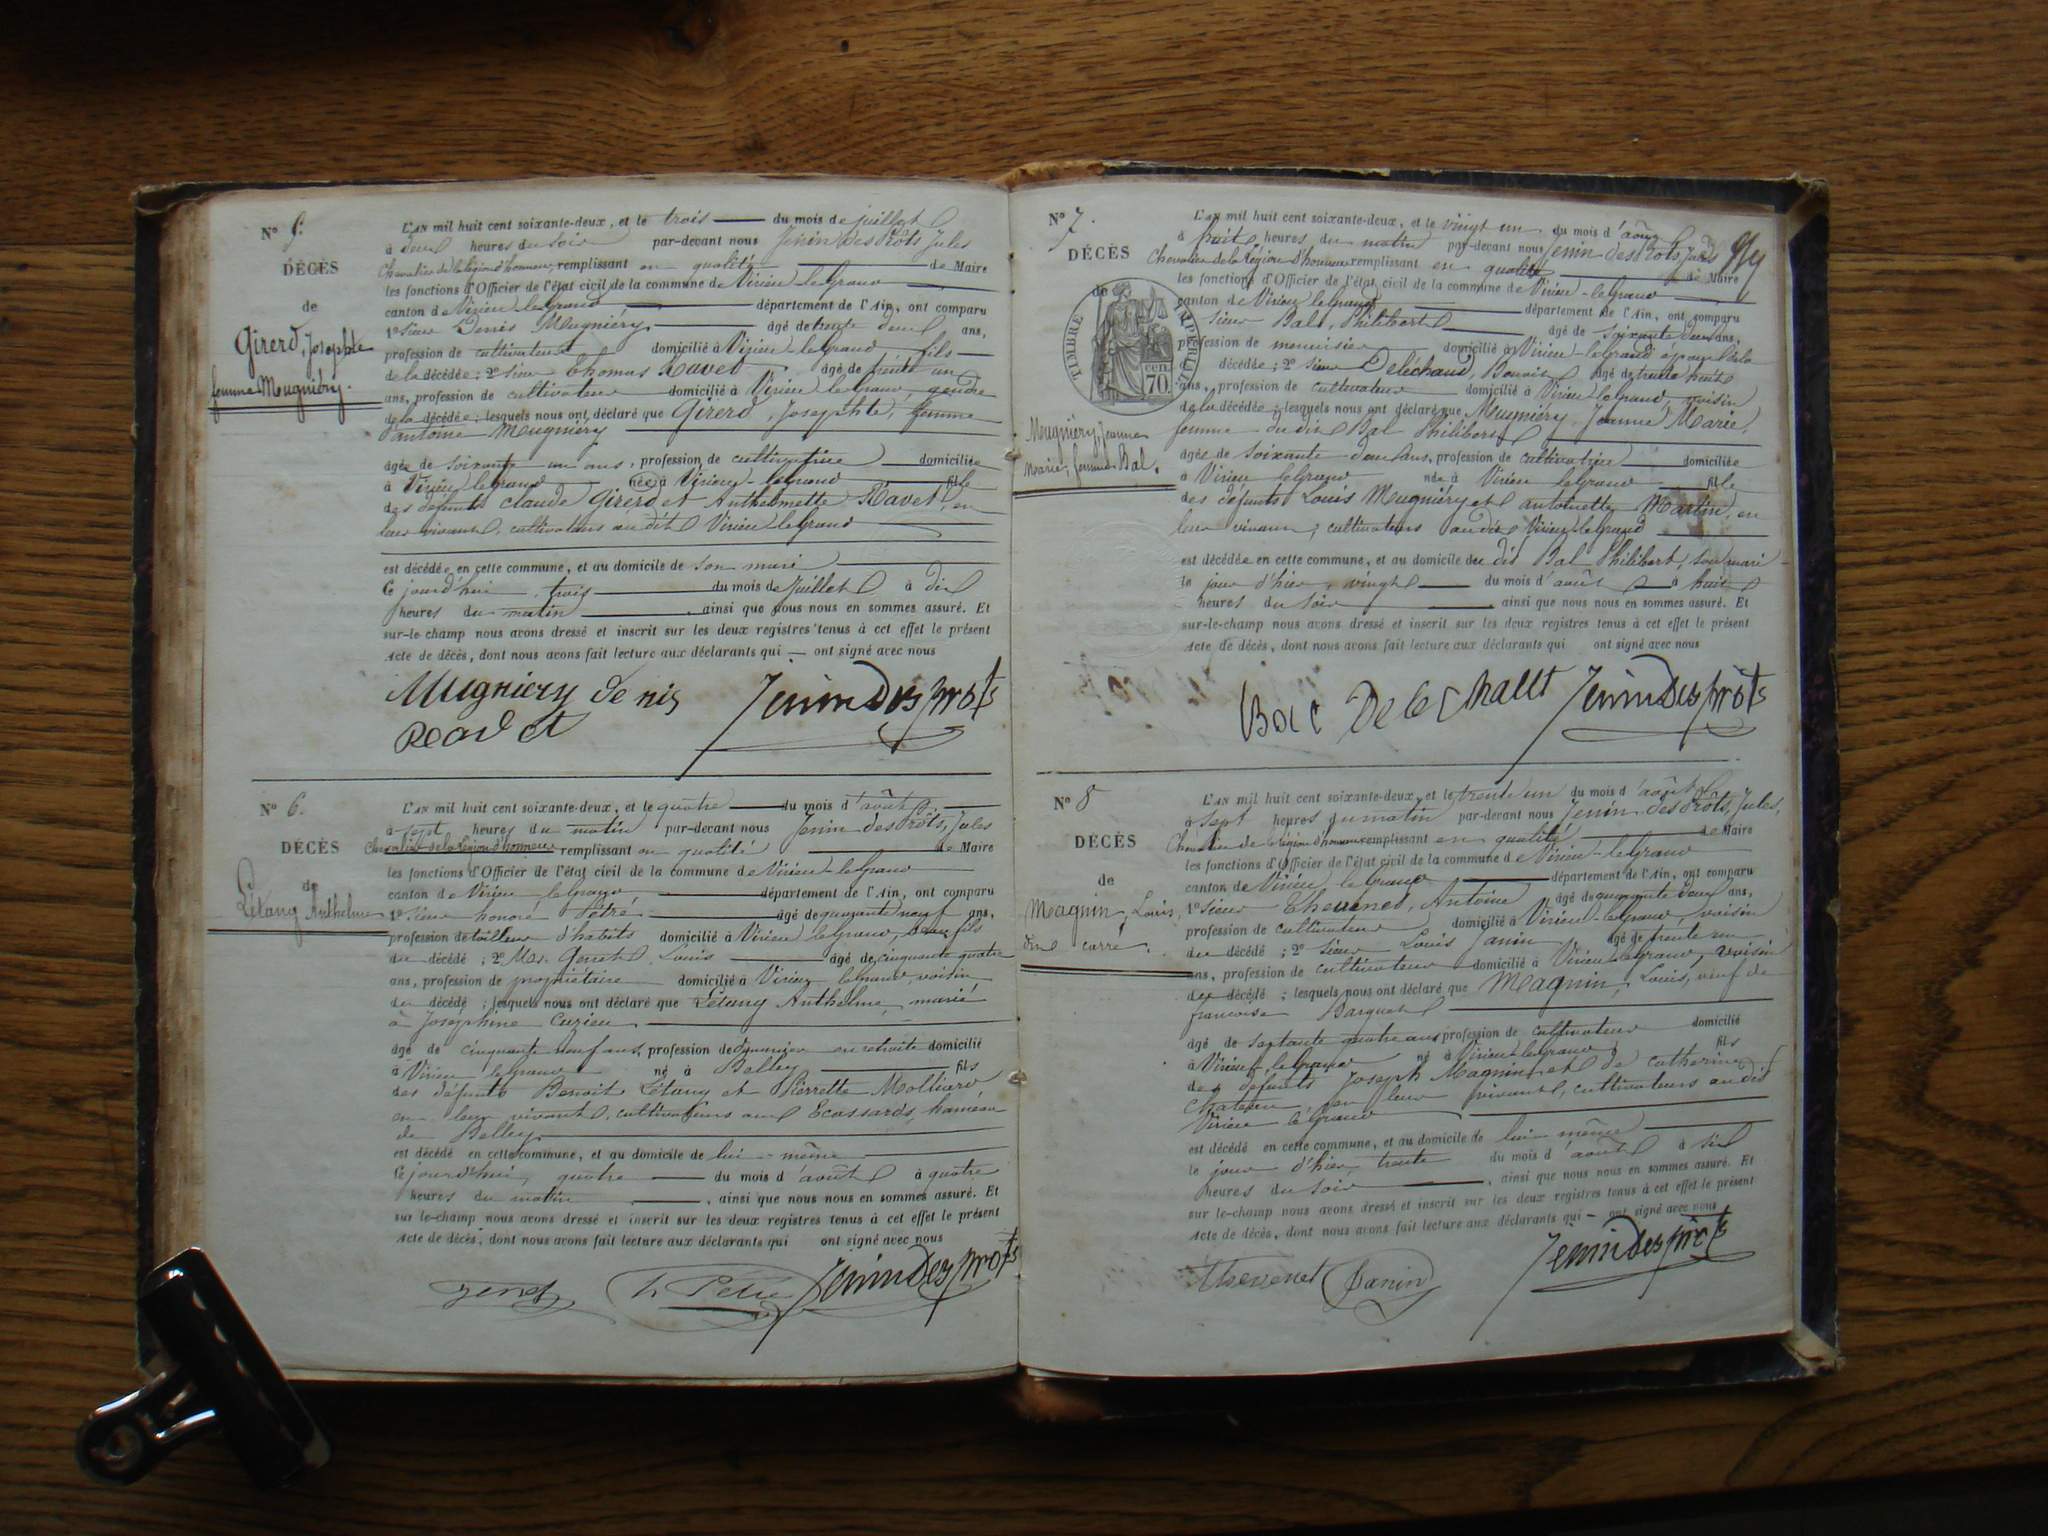 N° 5.
DÉCÈS
de
Girerd, Josephte
femme Meugniéry.
L'AN mil huit cent soixante-deux, et le trois du mois de juillet
à deux heures du soir par-devant nous Jenin des Prôts, Jules
Chevalier de la légion d'honneur, remplissant en qualité de Maire
les fonctions d'Officier de l'état civil de la commune de Virieu-le-Grand
canton de Virieu-le-Grand département de l'Ain, ont comparu
1° sieur Denis Meugniéry âgé de trente deux ans,
profession de cultivateur domicilié à Virieu-le-Grand fils
de la décédée; 2° sieur Thomas Ravet âgé de trente un
ans, profession de cultivateur domicilié à Virieu-le-Grand, gendre
de la décédée; lesquels nous ont déclaré que Girerd, Josephte, femme
d'antoine Meugniéry
âgée de soixante un ans, profession de cultivatrice domiciliée
à Virieu-le-grand née à Virieu-le-grand fille
des défunts Claude Girerd et Anthelmette Ravet, en
leur vivant, cultivateurs au dit Virieu-le-Grand
est décédée en cette commune, et au domicile de son mari
ce jourd'hui, trois du mois de juillet à dix
heures du matin, ainsi que nous nous en sommes assuré. Et
sur-le-champ nous avons dressé et inscrit sur les deux registres tenus à cet effet le présent
acte de décès, dont nous avons fait lecture aux déclarants qui — ont signé avec nous
Mugniery denis JeninDesprots
Ravet
N° 6.
DÉCÈS
de
Létang Anthelme
L'AN mil huit cent soixante-deux, et le quatre du mois d'août
à sept heures du matin par-devant nous Jenin des Prôts, Jules
Chevalier de la légion d'honneur remplissant en qualité de Maire
les fonctions d'Officier de l'état civil de la commune de Virieu-le-Grand
canton de Virieu-le-Grand département de l'Ain, ont comparu
1° sieur honoré Pétré âgé de quarante neuf ans,
profession de tailleur d'habits domicilié à Virieu le Grand, beau fils
du décédé; 2° Mr. Genet, Louis âgé de cinquante quatre
ans, profession de propriétaire domicilié à Virieu le grand, voisin
du décédé; lesquels nous ont déclaré que Létang Anthelme, marié
à Joséphine Cuzieu
âgé de cinquante neuf ans, profession de douanier en retraite domicilié
à Virieu le grand né à Belley fils
des défunts Benoit Létang et Pierrette Molliard
en leur vivant, cultivateurs aux Ecassards, hameau
de Belley
est décédé en cette commune, et au domicile de lui-même
ce jourd'hui, quatre du mois d'août à quatre
heures du matin, ainsi que nous nous en sommes assuré. Et
sur le-champ nous avons dressé et inscrit sur les deux registres tenus à cet effet le présent
acte de décès, dont nous avons fait lecture aux déclarants qui ont signé avec nous
genet h Petré JeninDesprots
N° 7.
DÉCÈS
de
TIMBRE IMPÉRIAL
70 cen.
Meugniéry, Jeanne
Marie, femme Bal.
L'AN mil huit cent soixante-deux, et le vingt un du mois d'août
à huit heures du matin par-devant nous Jenin des Prôts, Jules
Chevalier de la légion d'honneur remplissant en qualité de Maire
les fonctions d'Officier de l'état civil de la commune de Virieu-le-Grand
canton de Virieu le Grand département de l'Ain, ont comparu
sieur Bal, Philibert âgé de soixante deux ans,
profession de menuisier domicilié à Virieu-le-Grand époux de la
décédée; 2° sieur Deléchaud, Benoit âgé de trente huit
ans, profession de cultivateur domicilié à Virieu le Grand, voisin
de la décédée; lesquels nous ont déclaré que Meugniéry, Jeanne Marie,
femme du dit Bal Philibert
âgée de soixante deux ans, profession de cultivatrice domiciliée
à Virieu le Grand née à Virieu le Grand fille
des défunts Louis Meugniéry et antoinette Martin, en
leur vivant, cultivateurs au dit Virieu-le-grand
est décédée en cette commune, et au domicile du dit Bal Philibert, son mari
le jour d'hier, vingt du mois d'août à huit
heures du soir, ainsi que nous nous en sommes assuré. Et
sur-le-champ nous avons dressé et inscrit sur les deux registres tenus à cet effet le présent
acte de décès, dont nous avons fait lecture aux déclarants qui ont signé avec nous
JeninDesprots
N° 8
DÉCÈS
de
Magnin, Louis,
dit carré.
L'AN mil huit cent soixante-deux, et le trente un du mois d'août
à sept heures du matin par-devant nous Jenin des Prôts, Jules,
Chevalier de la légion d'honneur remplissant en qualité de Maire
les fonctions d'Officier de l'état civil de la commune de Virieu-le-Grand
canton de Virieu le Grand département de l'Ain, ont comparu
1° sieur Thevenet, Antoine âgé de quarante deux ans,
profession de cultivateur domicilié à Virieu-le-Grand, voisin
du décédé; 2° sieur Louis Janin âgé de trente un
ans, profession de cultivateur domicilié à Virieu-le-Grand, voisin
du décédé; lesquels nous ont déclaré que Magnin, Louis, veuf de
francoise Barquet
âgé de septante quatre ans profession de cultivateur domicilié
à Virieu le Grand né à Virieu-le-Grand fils
des défunts Joseph Magnin et de catherine
Chateau en leur vivant, cultivateurs au dit
Virieu le Grand
est décédé en cette commune, et au domicile de lui-même
le jour d'hier, trente du mois d'août à six
heures du soir, ainsi que nous nous en sommes assuré. Et
sur-le-champ nous avons dressé et inscrit sur les deux registres tenus à cet effet le présent
acte de décès, dont nous avons fait lecture aux déclarants qui — ont signé avec nous
Thevenet Janin JeninDesprots